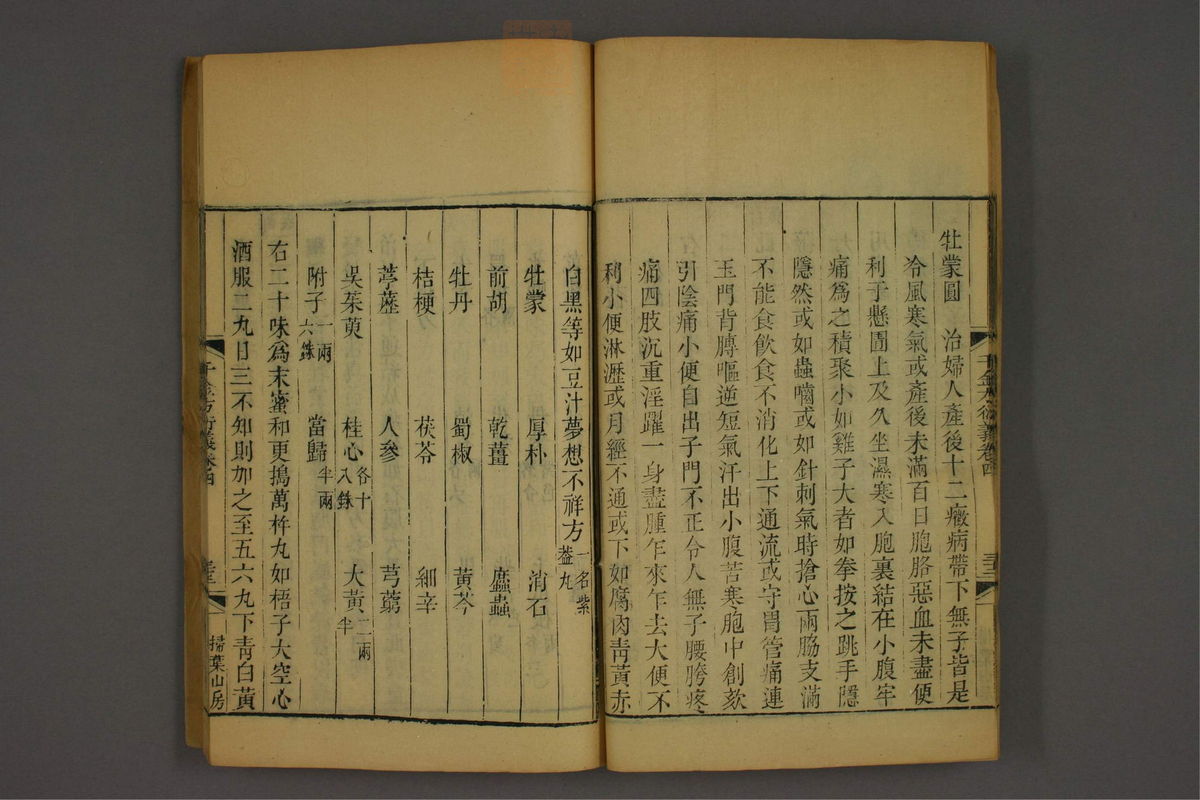 牡蒙圓 治婦人產後十二癥病帶下無子皆是
冷風寒氣或產後未滿百日胞胳惡血未盡便
利于懸圊上及久坐濕寒入胞裏結在小腹牢
痛爲之積聚小如雞子大者如拳按之跳手隱
隱然或如蟲嚙或如針刺氣時搶心兩脇支滿
不能食飲食不消化上下通流或守胃管痛連
玉門背膊嘔逆短氣汗出小腹苦寒胞中創欬
引陰痛小便自出子門不正令人無子腰胯疼
痛四肢沉重淫躍一身盡腫乍來乍去大便不
利小便淋瀝或月經不通或下如腐肉青黃赤
白黑等如豆汁夢想不祥方一名紫葢丸
牡蒙 厚朴 消石
前胡 乾薑 䗪蟲
牡丹 蜀椒 黃芩
桔梗 茯苓 細辛
葶藶 人參 芎藭
吳茱萸 桂心各十八銖 大黃二兩半
附子一兩六銖 當歸半兩
右二十味爲末蜜和更搗萬杵丸如梧子大空心
酒服二丸日三不知則加之至五六丸下青白黃
千金方衍義卷四
掃葉山房